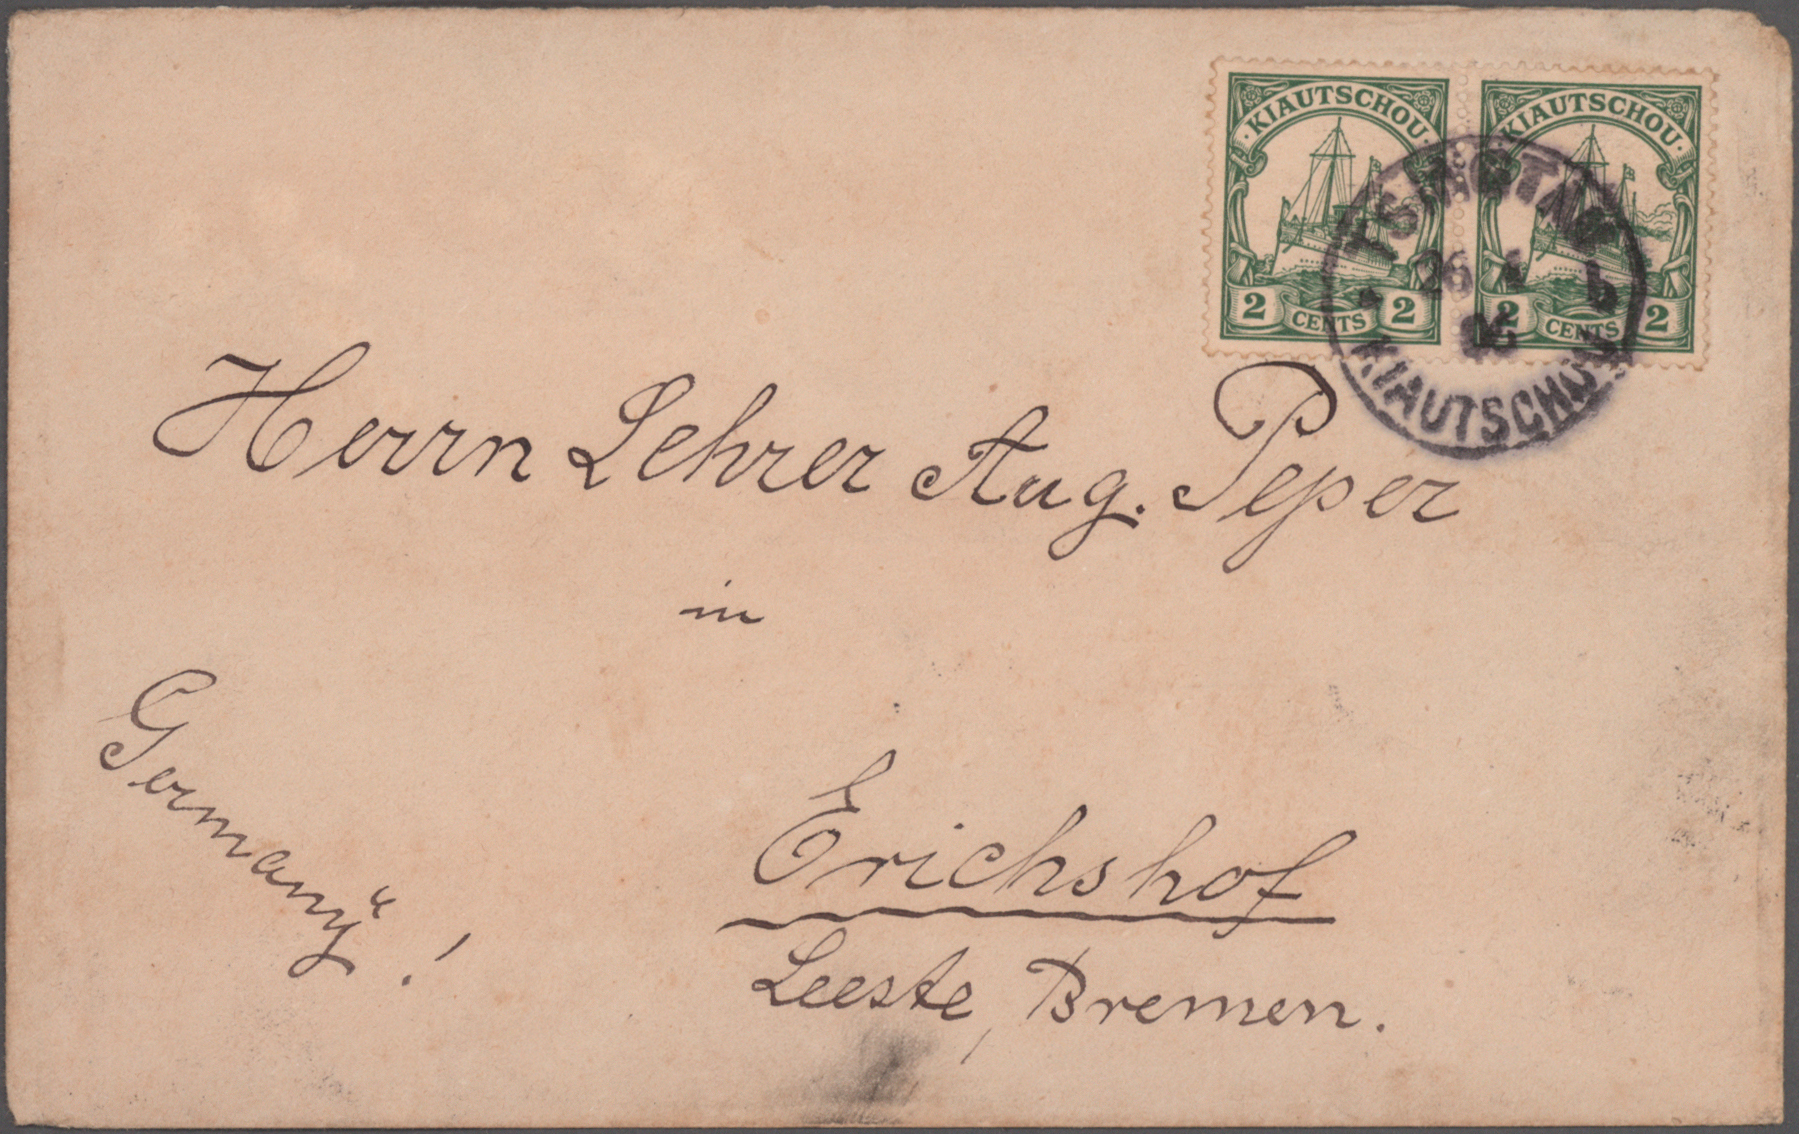 KIAUTSCHOU
2 CENTS 2
KIAUTSCHOU
2 CENTS 2
TSINGTAU
26
b
KIAUTSCHOU
Herrn Lehrer Aug. Peper
in
Erichshof
Leeste, Bremen.
Germany“!